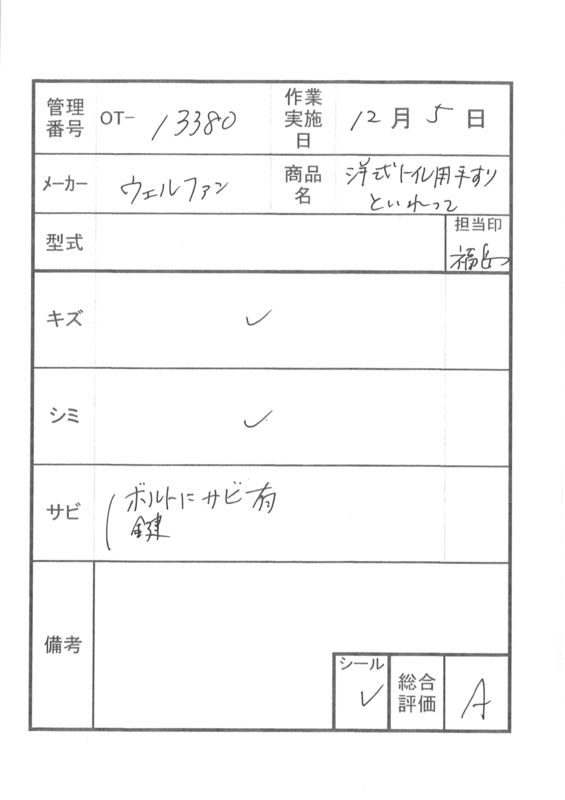 管理番号 OT- 13380 作業実施日 12月5日
メーカー ウェルファン 商品名 洋式トイレ用手すり
といれって
型式 担当印
キズ ✓
シミ ✓
サビ ボルトにサビ有
鍵
備考
シール ✓ 総合評価 A